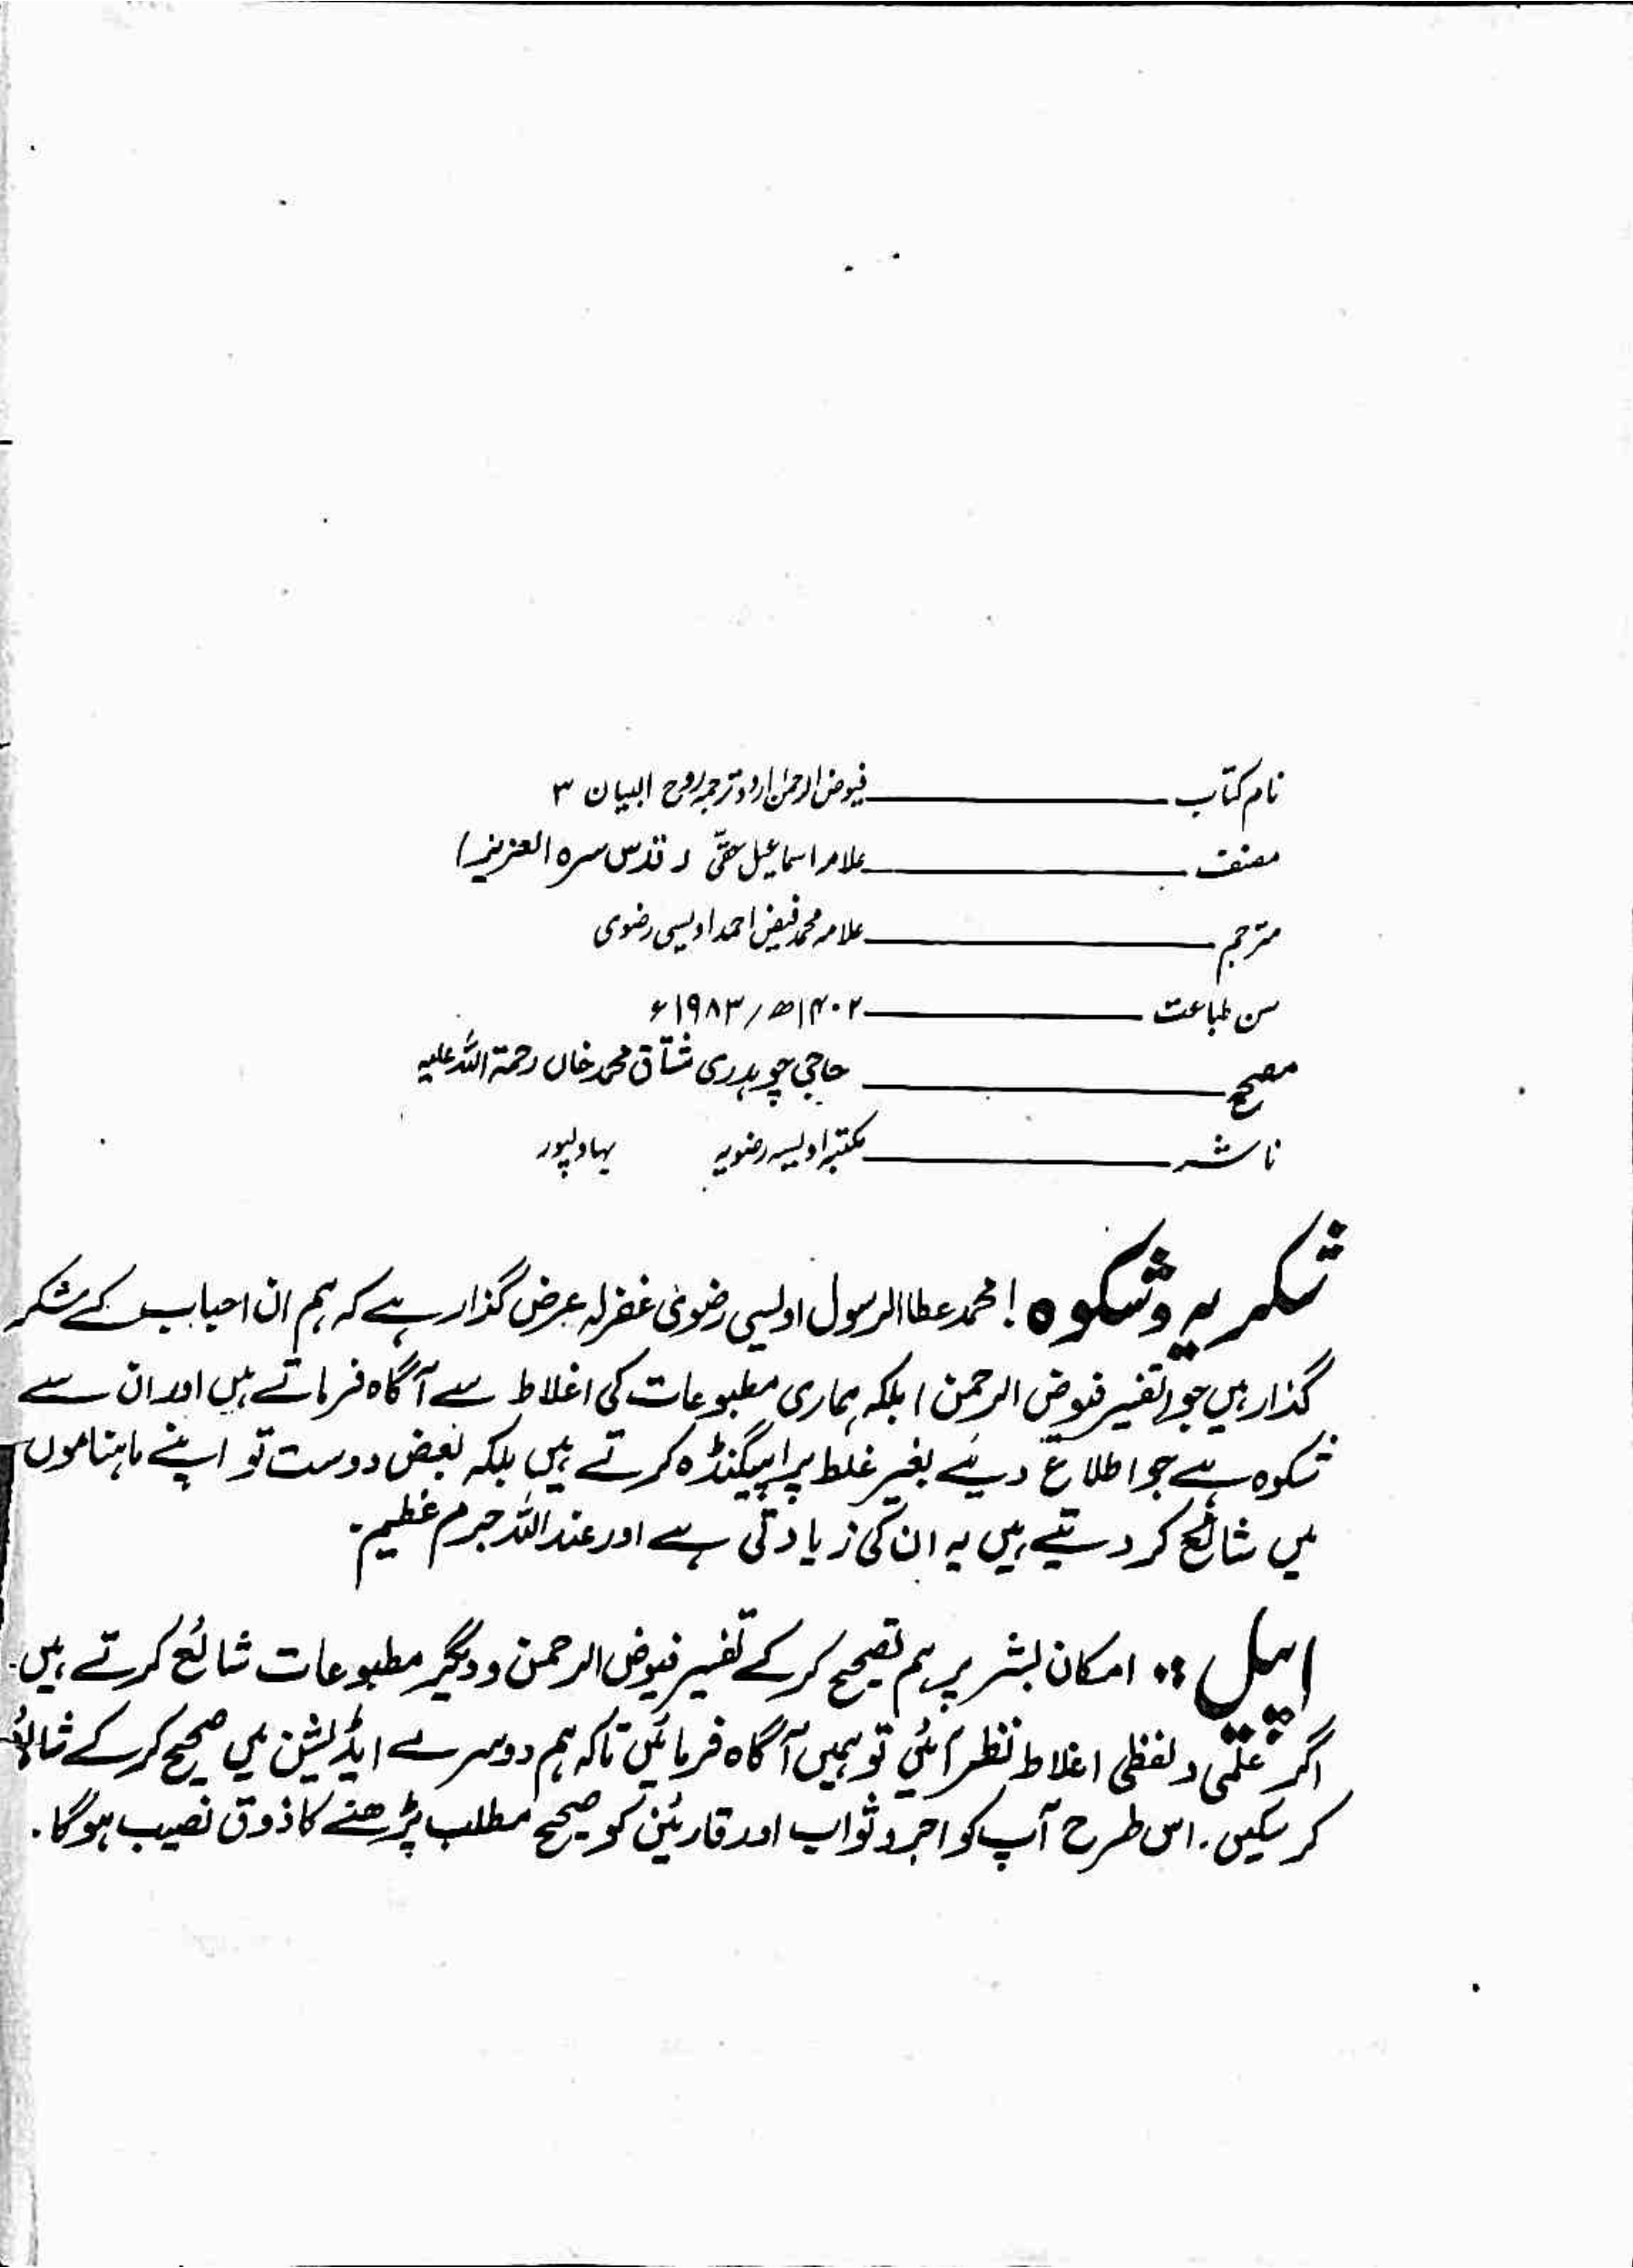 نام کتاب ــــــــــ فیوض الرحمٰن اردو ترجمہ روح البیان ۳
مصنف ــــــــــ علامہ اسماعیل حقّی (قدس سرہ العزیز)
مترجم ــــــــــ علامہ محمد فیض احمد اویسی رضوی
سن طباعت ــــــــــ ۱۴۰۲ھ / ۱۹۸۳ء
مصحح ــــــــــ حاجی چوہدری مشتاق محمد خاں رحمۃ اللہ علیہ
ناشر ــــــــــ مکتبہ اویسیہ رضویہ بہاولپور
شکریہ و شکوہ ! محمد عطا الرسول اویسی رضوی غفرلہ عرض گذار ہے کہ ہم ان احباب کے شکر
گذار ہیں جو (تفسیر فیوض الرحمن) بلکہ ہماری مطبوعات کی اغلاط سے آگاہ فرماتے ہیں اور ان سے
شکوہ ہے جو اطلاع دیئے بغیر غلط پراپیگنڈہ کرتے ہیں بلکہ بعض دوست تو اپنے ماہناموں
میں شائع کر دیتے ہیں یہ ان کی زیادتی ہے اور عند اللہ جرم عظیم۔
اپیل :: امکان بشر پر ہم تصحیح کر کے تفسیر فیوض الرحمن و دیگر مطبوعات شائع کرتے ہیں۔
اگر علمی و لفظی اغلاط نظر آئیں تو ہمیں آگاہ فرمائیں تاکہ ہم دوسرے ایڈیشن میں صحیح کر کے شائع
کر سکیں۔ اس طرح آپ کو اجر و ثواب اور قارئین کو صحیح مطلب پڑھنے کا ذوق نصیب ہو گا۔